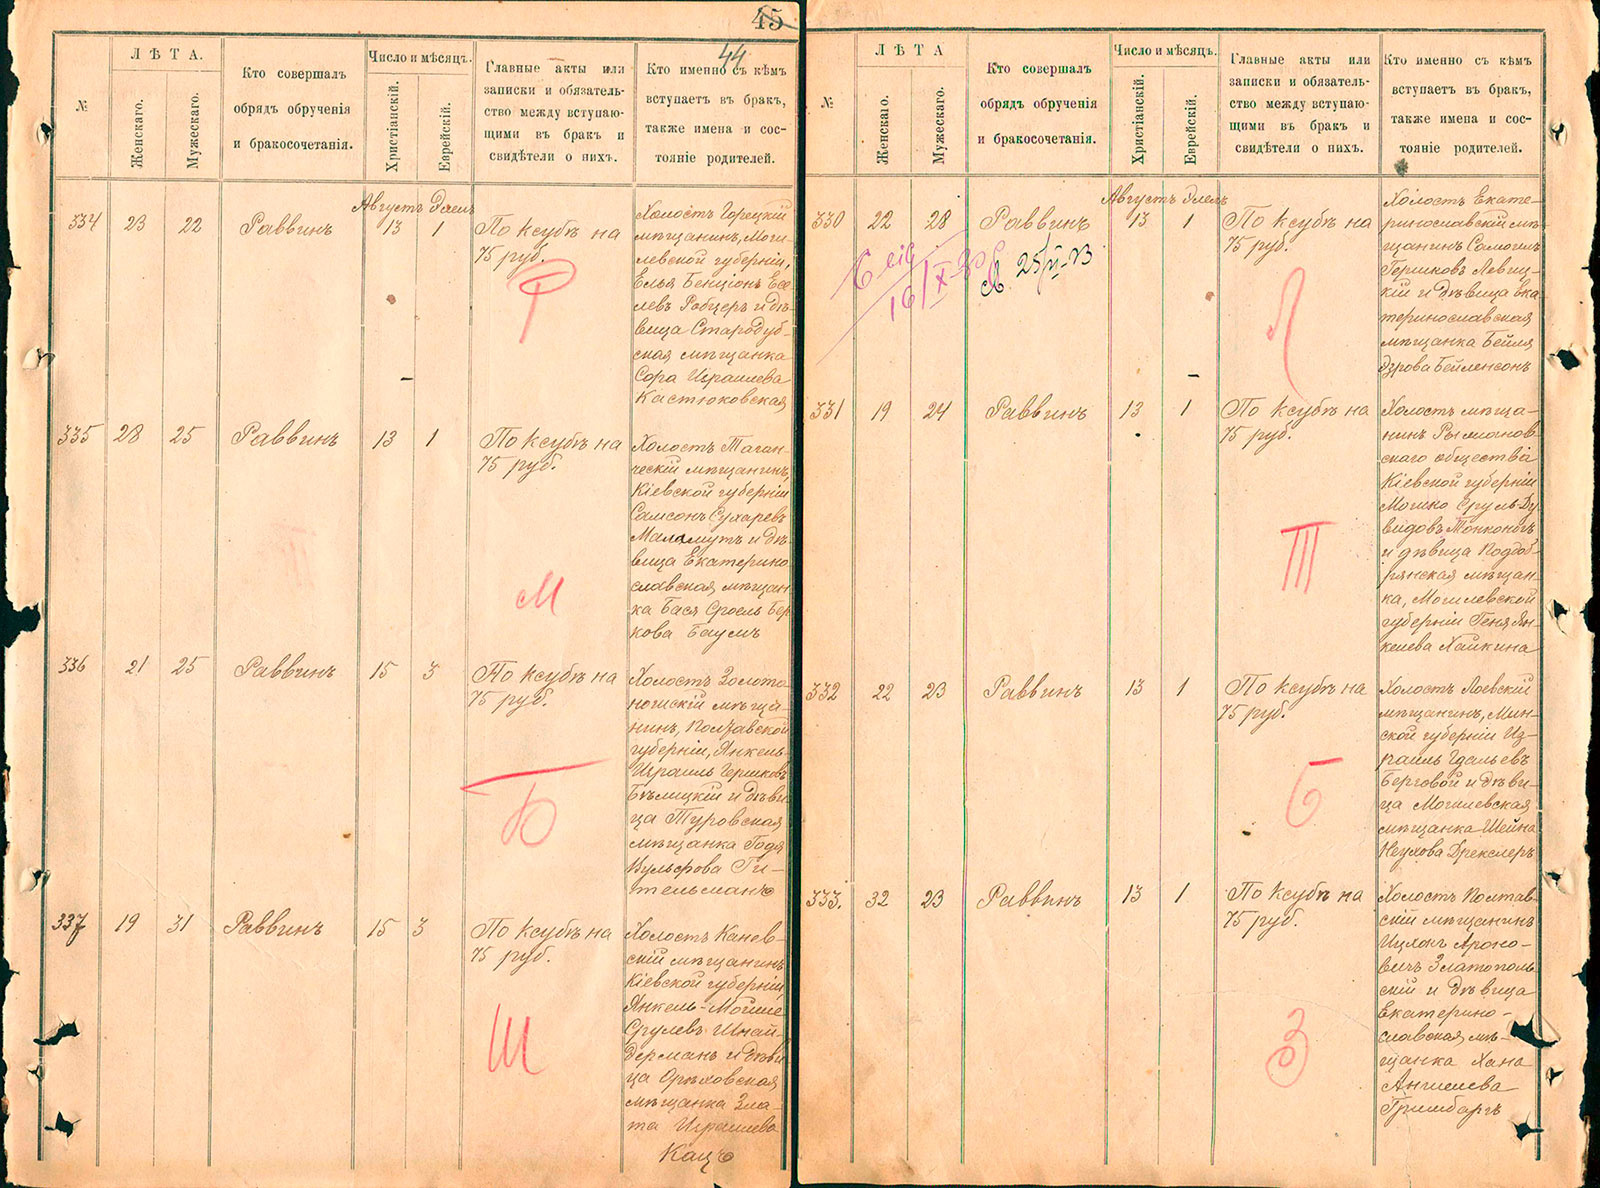 45
44
№
ЛѢТА.
Женскаго.
Мужескаго.
Кто совершалъ
обрядъ обрученія
и бракосочетанія.
Число и мѣсяцъ.
Христіанскій.
Еврейскій.
Главные акты или
записки и обязатель-
ство между вступаю-
щими въ бракъ и
свидѣтели о нихъ.
Кто именно съ кѣмъ
вступаетъ въ бракъ,
также имена и сос-
тояніе родителей.
Августъ Элелъ
334 23 22 Раввинъ 13 1
По ксубѣ на
75 руб.
Р
Холостъ Горецкій
мѣщанинъ, Моги-
левской губерніи,
Елья Бенціонъ Есе
левъ Робцеръ и дѣ-
вица Стародуб-
ская мѣщанка
Сора Израилева
Кастюковская
335 28 25 Раввинъ 13 1
По ксубѣ на
75 руб.
М
Холостъ Таган-
ческій мѣщанинъ
Кіевской губерніи
Самсонъ Сухаревъ
Маламутъ и дѣ-
вица Екатерино
славская мѣщан
ка Бася Сроель Бер
кова Баумъ
336 21 25 Раввинъ 15 3
По ксубѣ на
75 руб.
Б
Холостъ Золото
ношскій мѣща-
нинъ, Полтавской
губерніи, Янкель-
Израиль Гершковъ
Бѣлицкій и дѣви
ца Туровская
мѣщанка Годя
Вульфова Ги-
тельманъ
337 19 31 Раввинъ 15 3
По ксубѣ на
75 руб.
Ш
Холостъ Канев-
скій мѣщанинъ
Кіевской губерніи
Янкель-Мойше
Срулевъ Шнай-
дерманъ и дѣви
ца Орѣховская
мѣщанка Зла-
та Израилева
Кацъ
№
ЛѢТА
Женскаго.
Мужескаго.
Кто совершалъ
обрядъ обрученія
и бракосочетанія.
Число и мѣсяцъ.
Христіанскій.
Еврейскій.
Главные акты или
записки и обязатель-
ство между вступаю-
щими въ бракъ и
свидѣтели о нихъ.
Кто именно съ кѣмъ
вступаетъ въ бракъ,
также имена и сос-
тояніе родителей.
Августъ Элелъ
330 22 28 Раввинъ 13 1
По ксубѣ на
75 руб.
Л
Холостъ Екате-
ринославскій мѣ-
щанинъ Самоилъ
Гершковъ Левиц-
кій и дѣвица Ека
теринославская
мѣщанка Бейля
Эзрова Бейленсонъ
331 19 24 Раввинъ 13 1
По ксубѣ на
75 руб.
Т
Холостъ мѣща-
нинъ Рыжанов-
скаго общества
Кіевской губерніи
Мошко Сруль Ду
видовъ Тонконогъ
и дѣвица Подоб-
рянская мѣщан-
ка, Могилевской
губерніи Геня Ян-
келева Хайкина
332 22 23 Раввинъ 13 1
По ксубѣ на
75 руб.
Б
Холостъ Лоевскій
мѣщанинъ, Мин-
ской губерніи Из-
раиль Гдальевъ
Берговой и дѣви-
ца Могилевская
мѣщанка Шейна
Неухова Дрекслеръ
333. 32 23 Раввинъ 13 1
По ксубѣ на
75 руб.
З
Холостъ Полтав-
скій мѣщанинъ
Ицхокъ Ароно-
вичъ Златополь
скій и дѣвица
Екатерино-
славская мѣ-
щанка Хана
Аншелева
Гринбаргъ